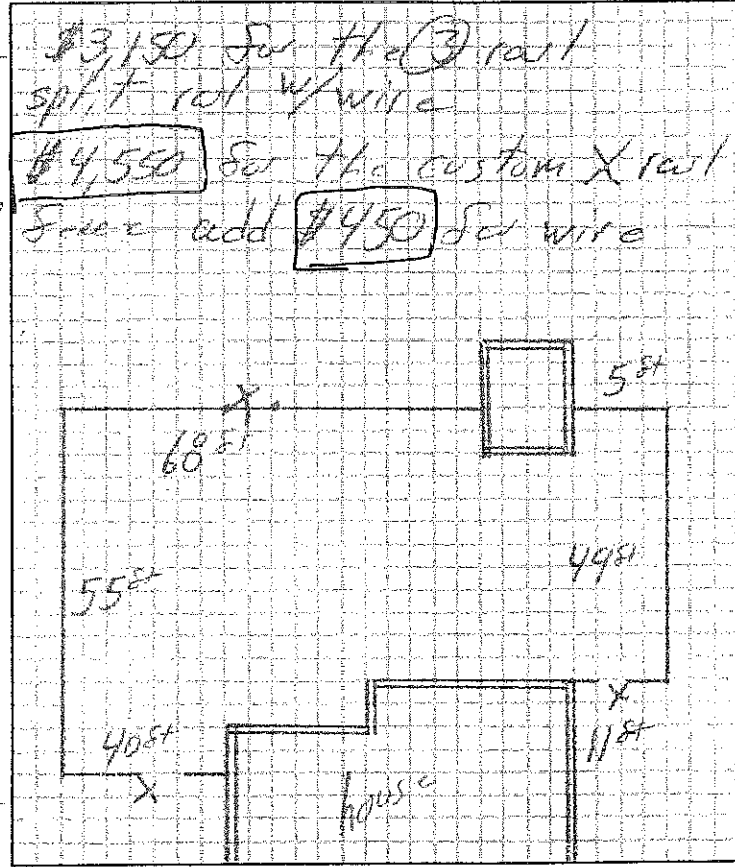 $3,150 for the (3) rail
split rail w/wire
$4,550 for the custom X rail
fence add $450 for wire
5 ft
X
68 ft
55 ft
49 ft
X
40 ft
11 ft
X
house